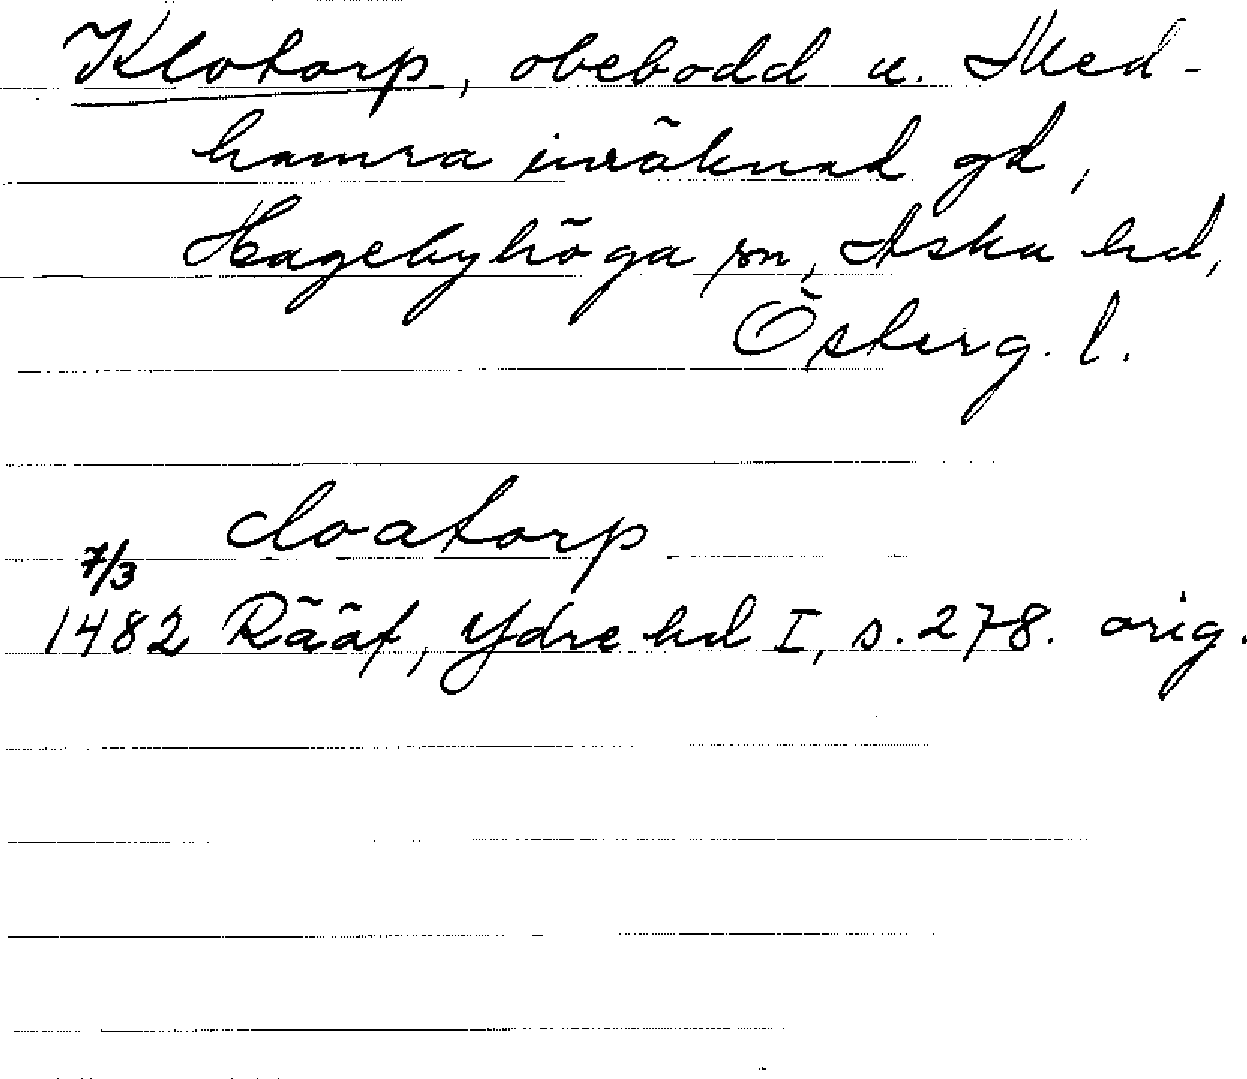 Klotorp, obebodd u. Med-
hamra inräknad gd,
Hagebyhöga sn, Aska hd,
Österg. l.
cloatorp
7/3
1482 Rääf, Ydre hd I, s. 278. orig.